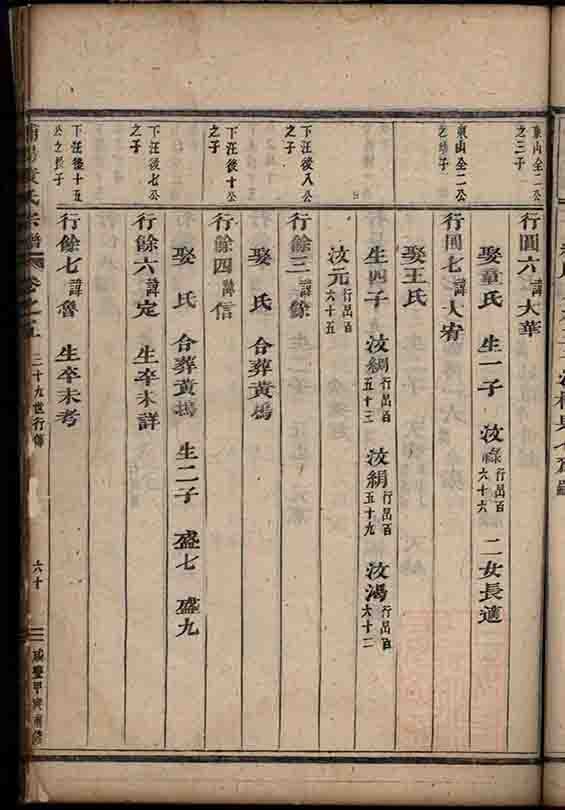 東山全二公
之三子
行圓六 諱大華
娶章氏 生一子 汝祿 行昌百六十六 二女長適
東山全二公
之幼子
行圓七 諱人宥
娶王氏
生四子 汝綢 行昌百五十三 汝絹 行昌百五十九 汝鴻 行昌百六十二
汝元 行昌百六十五
下汪後八公
之子
行餘三 諱餘
娶 氏 合葬黃塢
下汪後十公
之子
行餘四 諱信
娶 氏 合葬黃塢 生二子 盛七 盛九
下汪後七公
之子
行餘六 諱定 生卒未詳
下汪後十五
公之長子
行餘七 諱魯 生卒未考
黃氏宗譜 卷之五 三十九世行傳 六十 咸豐甲寅重修